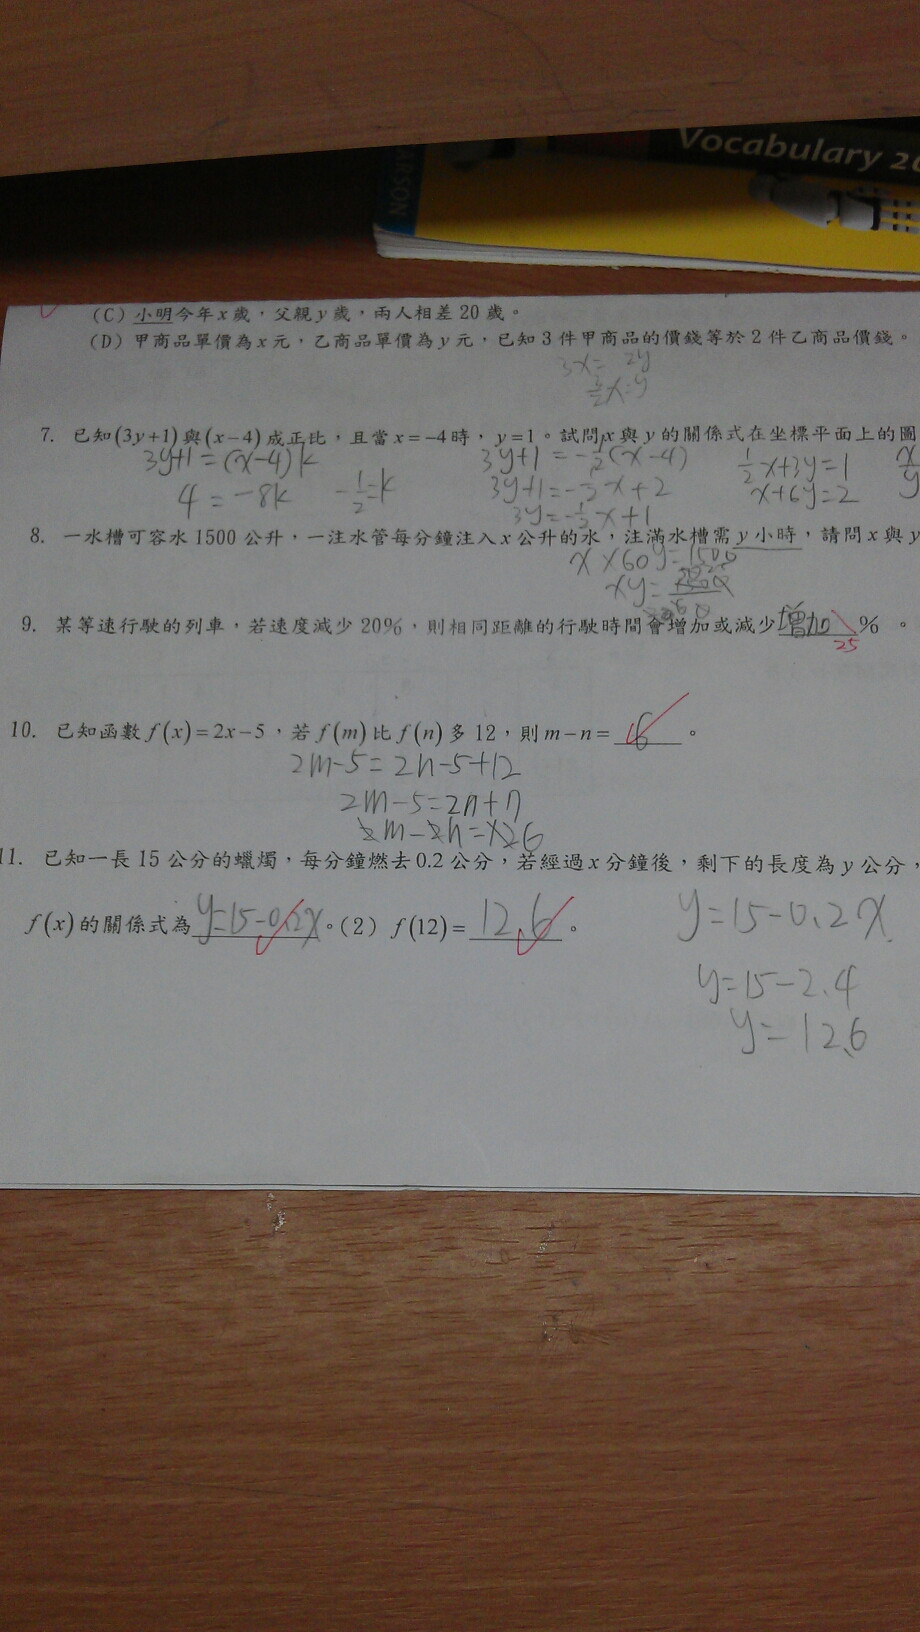 Vocabulary
ARSON
(C) 小明今年x歲，父親y歲，兩人相差20歲。
(D) 甲商品單價為x元，乙商品單價為y元，已知3件甲商品的價錢等於2件乙商品價錢。
3x=2y
3/2x=y
7. 已知(3y+1)與(x-4)成正比，且當x=-4時，y=1。試問x與y的關係式在坐標平面上的圖
3y+1=(x-4)k 3y+1=-1/2(x-4) 1/2x+3y=1
4=-8k -1/2=k 3y+1=-1/2x+2 x+6y=2
3y=-1/2x+1
8. 一水槽可容水1500公升，一注水管每分鐘注入x公升的水，注滿水槽需y小時，請問x與y
x×60y=1500
xy=
9. 某等速行駛的列車，若速度減少20%，則相同距離的行駛時間會增加或減少增加%。
25
10. 已知函數f(x)=2x-5，若f(m)比f(n)多12，則m-n=6。
2m-5=2n-5+12
2m-5=2n+7
2m-2n=126
11. 已知一長15公分的蠟燭，每分鐘燃去0.2公分，若經過x分鐘後，剩下的長度為y公分，
f(x)的關係式為y=15-0.2x。(2) f(12)=12.6。 y=15-0.2x
y=15-2.4
y=12.6